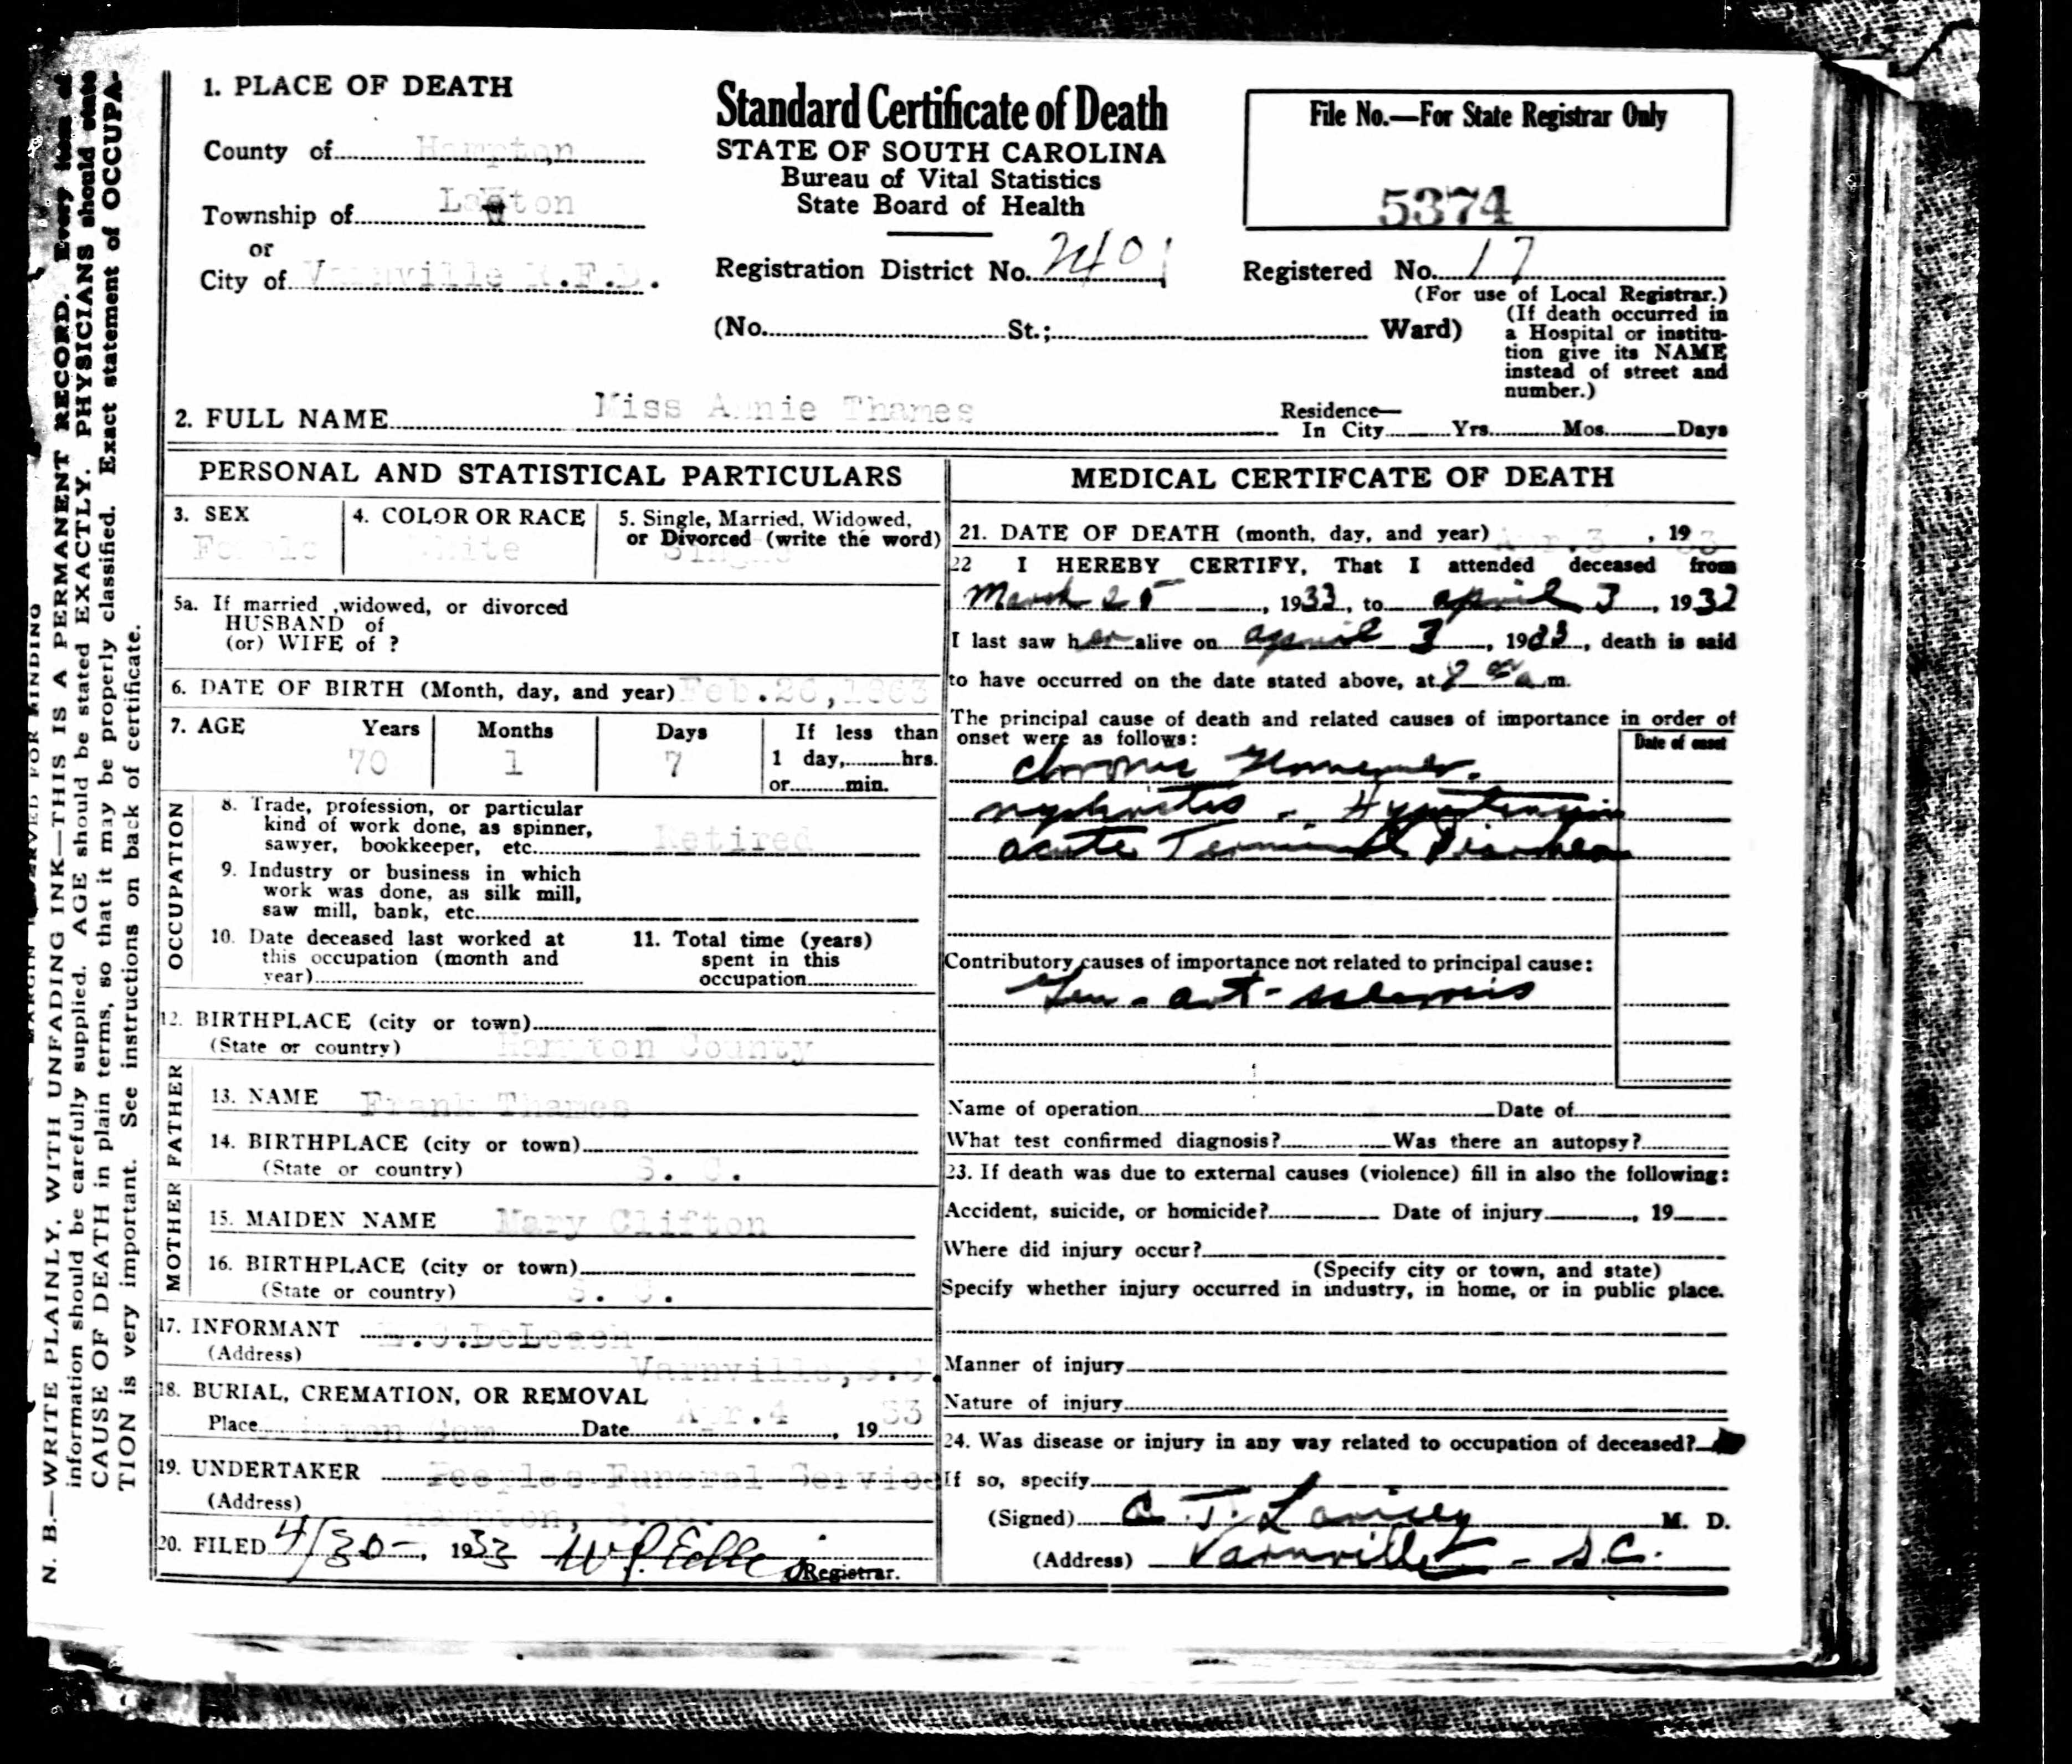 1. PLACE OF DEATH
County of Hampton
Township of Lawton
or
City of Varnville R.F.D.
Standard Certificate of Death
STATE OF SOUTH CAROLINA
Bureau of Vital Statistics
State Board of Health
Registration District No. 2401
(No. St.; Ward)
File No.—For State Registrar Only
5374
Registered No. 17
(For use of Local Registrar.)
(If death occurred in
a Hospital or institu-
tion give its NAME
instead of street and
number.)
2. FULL NAME Miss Annie Thames
Residence—
In City Yrs. Mos. Days
PERSONAL AND STATISTICAL PARTICULARS
3. SEX
Female
4. COLOR OR RACE
White
5. Single, Married, Widowed,
or Divorced (write the word)
Single
5a. If married ,widowed, or divorced
HUSBAND of
(or) WIFE of ?
6. DATE OF BIRTH (Month, day, and year) Feb.26,1863
7. AGE Years Months Days If less than
70 1 7 1 day, hrs.
or min.
OCCUPATION
8. Trade, profession, or particular
kind of work done, as spinner,
sawyer, bookkeeper, etc. Retired
9. Industry or business in which
work was done, as silk mill,
saw mill, bank, etc.
10. Date deceased last worked at
this occupation (month and
year)
11. Total time (years)
spent in this
occupation
12. BIRTHPLACE (city or town)
(State or country) Hampton County
FATHER
13. NAME Frank Thames
14. BIRTHPLACE (city or town)
(State or country) S. C.
MOTHER
15. MAIDEN NAME Mary Clifton
16. BIRTHPLACE (city or town)
(State or country) S. C.
17. INFORMANT DeLoach
(Address) Varnville,S.C.
18. BURIAL, CREMATION, OR REMOVAL
Place Cem Date Apr.4, 1933
19. UNDERTAKER Peeples Funeral Service
(Address) Hampton, S. C.
20. FILED 4/30-, 1933
Registrar.
MEDICAL CERTIFCATE OF DEATH
21. DATE OF DEATH (month, day, and year) Apr.3, 1933
22 I HEREBY CERTIFY, That I attended deceased from
March 25, 1933, to april 3, 1932
I last saw her alive on april 3, 1933, death is said
to have occurred on the date stated above, at m.
The principal cause of death and related causes of importance in order of
onset were as follows:
Date of onset
chronic
nephritis - Hypertension
acute Terminal
Contributory causes of importance not related to principal cause:
Gen - art - sclerosis
Name of operation Date of
What test confirmed diagnosis? Was there an autopsy?
23. If death was due to external causes (violence) fill in also the following:
Accident, suicide, or homicide? Date of injury , 19
Where did injury occur?
(Specify city or town, and state)
Specify whether injury occurred in industry, in home, or in public place.
Manner of injury
Nature of injury
24. Was disease or injury in any way related to occupation of deceased?
If so, specify
(Signed) M. D.
(Address) Varnville - S.C.
N. B.—WRITE PLAINLY, WITH UNFADING INK—THIS IS A PERMANENT RECORD. Every item of
information should be carefully supplied. AGE should be stated EXACTLY. PHYSICIANS should state
CAUSE OF DEATH in plain terms, so that it may be properly classified. Exact statement of OCCUPA-
TION is very important. See instructions on back of certificate.